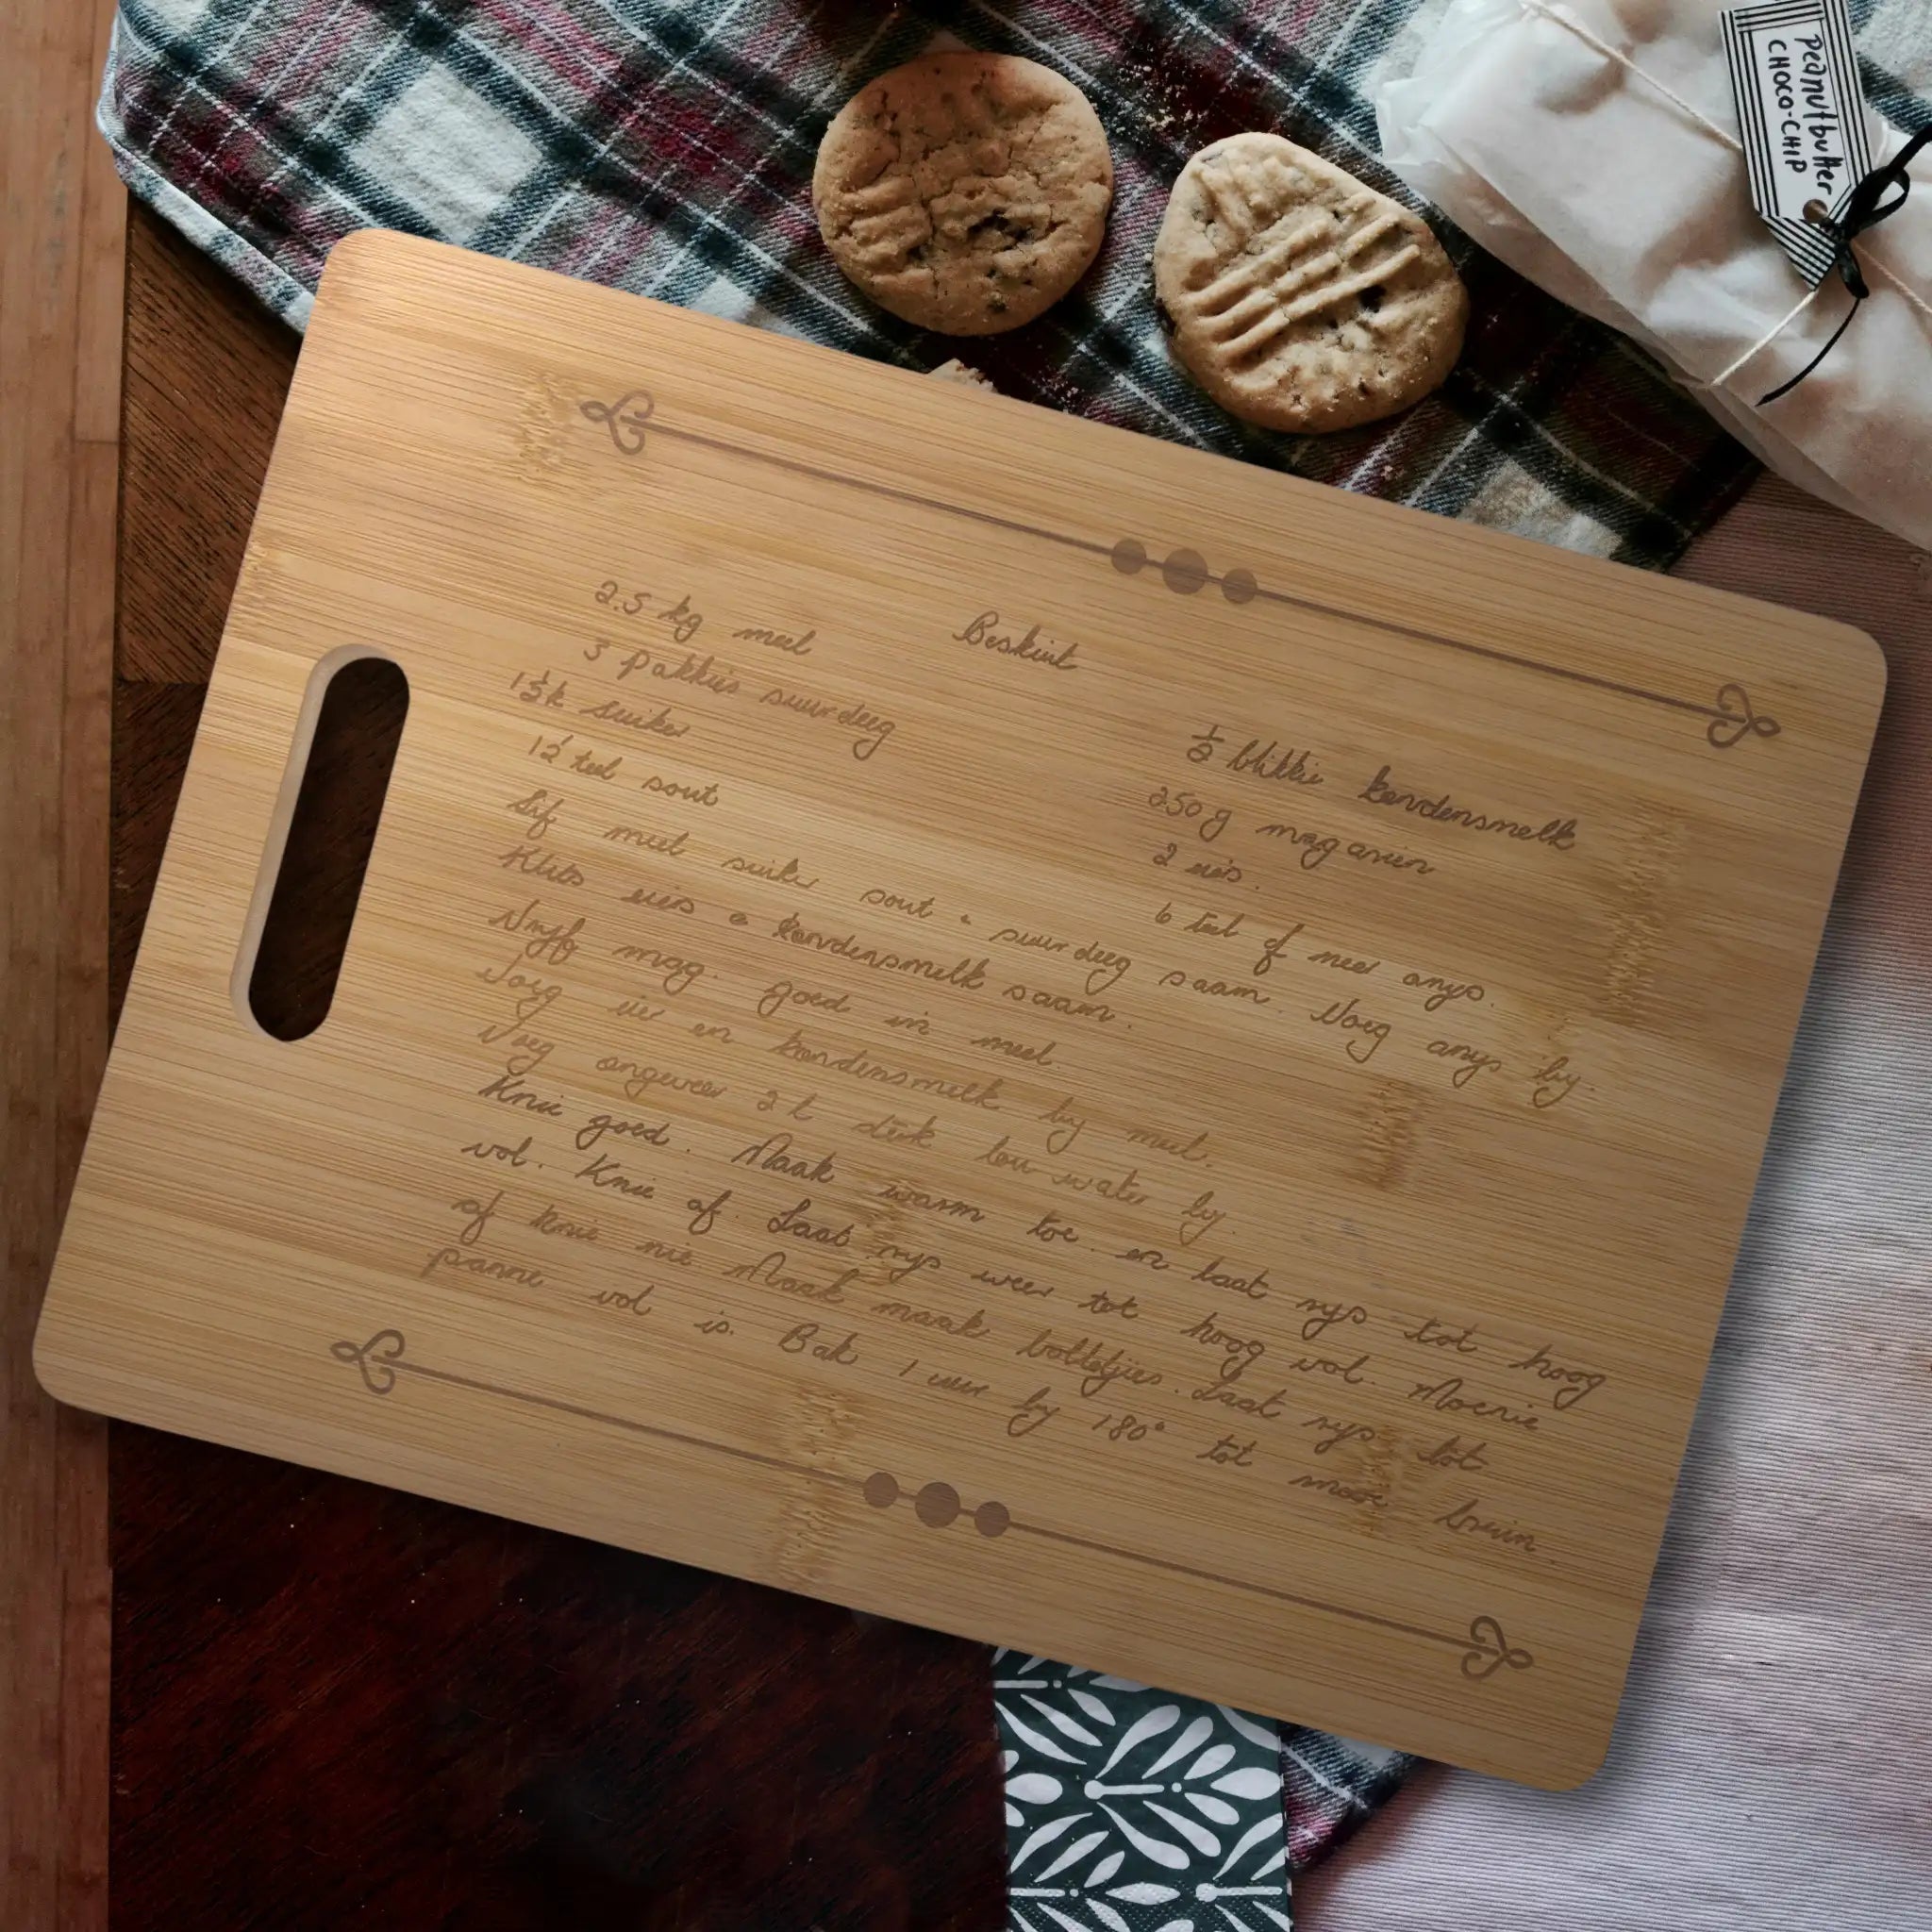 Peanutbutter
CHOCO-CHIP
Beskuit
2.5 kg meel
3 pakkies suurdeeg
1½k suiker
1½ teel sout
½ blikkie kondensmelk
250 g magarien
2 eiers.
6 teel of meer anys.
Sif meel suiker sout & suurdeeg saam. Voeg anys by.
Klits eiers & kondensmelk saam.
Vryf mag. goed in meel.
Voeg eier en kondensmelk by meel.
Voeg ongeveer 2 l lou water by.
Knie goed. Maak warm toe en laat rys tot hoog
vol. Knie af. Laat rys weer tot hoog vol. Moenie
af knie nie Maak maak bolletjies. Laat rys tot
panne vol is. Bak 1 uur by 180° tot mooi bruin.